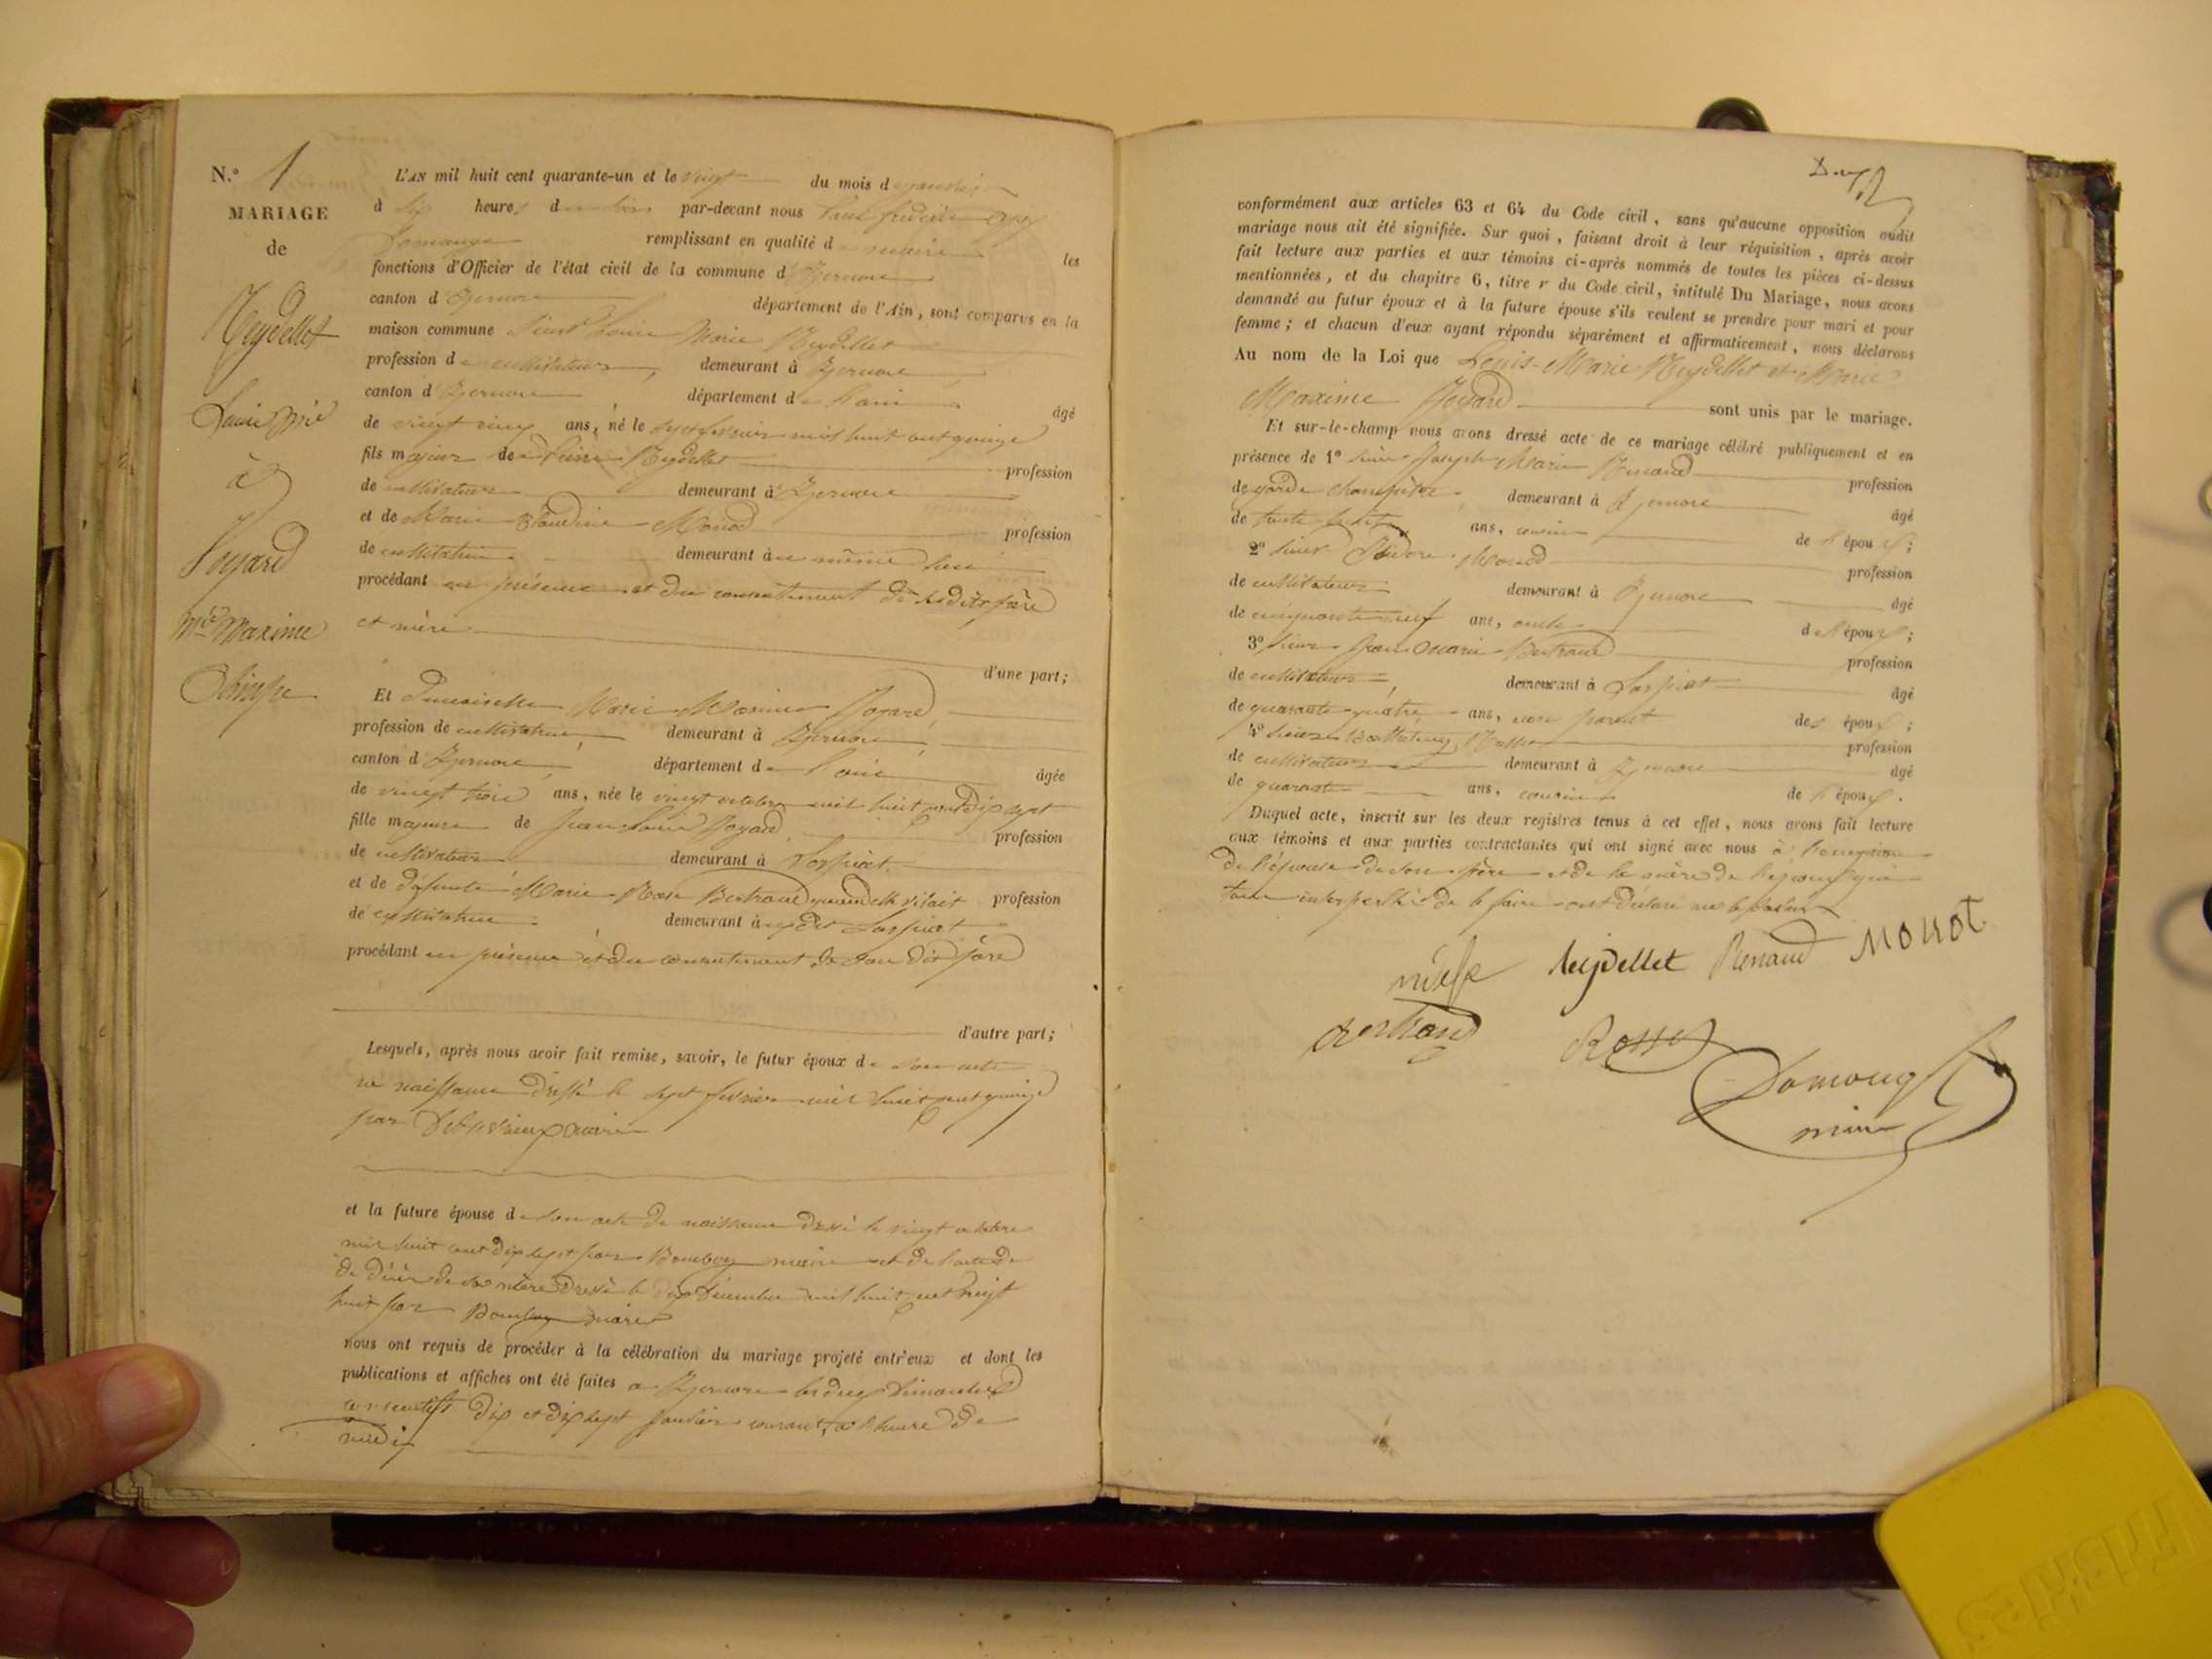 N.° 1
MARIAGE
de
Neydellet
Louis Mie
à
Joyard
Mie Maxime
L'AN mil huit cent quarante-un et le vingt du mois de janvier
à six heures du soir par-devant nous Paul frédéric
Domange remplissant en qualité de maire les
fonctions d'Officier de l'état civil de la commune d'Izernore
canton d'Izernore département de l'Ain, sont comparus en la
maison commune Sieur Louis Marie Neydellet
profession de cultivateur, demeurant à Izernore,
canton d'Izernore département de l'ain âgé
de vingt cinq ans, né le sept février mil huit cent quinze
fils majeur de Neydellet profession
de cultivateur demeurant à Izernore
et de Marie Claudine Monod profession
de cultivatrice demeurant au même lieu
procédant en présence et du consentement de ses dits père
et mère
d'une part;
Et demoiselle Marie Maxime Joyard,
profession de cultivatrice, demeurant à Izernore,
canton d'Izernore, département de l'ain âgée
de vingt trois ans, née le vingt octobre mil huit cent dix sept
fille majeure de Jean Louis Joyard profession
de cultivateur demeurant à
et de défunte Marie Rose Bertrand quand elle vivait profession
de cultivatrice demeurant au dit
procédant en présence et du consentement de son dit père
d'autre part;
Lesquels, après nous avoir fait remise, savoir, le futur époux de son acte
de naissance dressé le sept février mil huit cent quinze
par maire
et la future épouse de son acte de naissance dressé le vingt octobre
mil huit cent dix sept par maire et de l'acte de
de décès de sa mère dressé le dix décembre mil huit cent vingt
huit par maire
nous ont requis de procéder à la célébration du mariage projeté entr'eux et dont les
publications et affiches ont été faites à Izernore les deux dimanches
consécutifs dix et dix sept janvier courant, à l'heure de
midi
conformément aux articles 63 et 64 du Code civil, sans qu'aucune opposition audit
mariage nous ait été signifiée. Sur quoi, faisant droit à leur réquisition, après avoir
fait lecture aux parties et aux témoins ci-après nommés de toutes les pièces ci-dessus
mentionnées, et du chapitre 6, titre v du Code civil, intitulé Du Mariage, nous avons
demandé au futur époux et à la future épouse s'ils veulent se prendre pour mari et pour
femme; et chacun d'eux ayant répondu séparément et affirmativement, nous déclarons
Au nom de la Loi que Louis-Marie Neydellet et Marie
Maxime Joyard sont unis par le mariage.
Et sur-le-champ nous avons dressé acte de ce mariage célébré publiquement et en
présence de 1° sieur Joseph Marie Renaud profession
de garde champêtre, demeurant à Izernore âgé
de trente huit ans, cousin de l'époux;
2° sieur Isidore Monod profession
de cultivateur demeurant à Izernore âgé
de cinquante neuf ans, oncle de l'époux;
3° sieur Jean Marie Bertrand profession
de cultivateur, demeurant à âgé
de quarante quatre ans, non parent des époux;
4° sieur profession
de cultivateur demeurant à Izernore âgé
de quarante ans, cousin de l'époux.
Duquel acte, inscrit sur les deux registres tenus à cet effet, nous avons fait lecture
aux témoins et aux parties contractantes qui ont signé avec nous à l'exception
de l'épouse de son père et de la mère de l'époux qui
interpellés de le faire ont déclaré ne le savoir
Neydellet Renaud Monot
Bertrand Rosset
Domange
maire